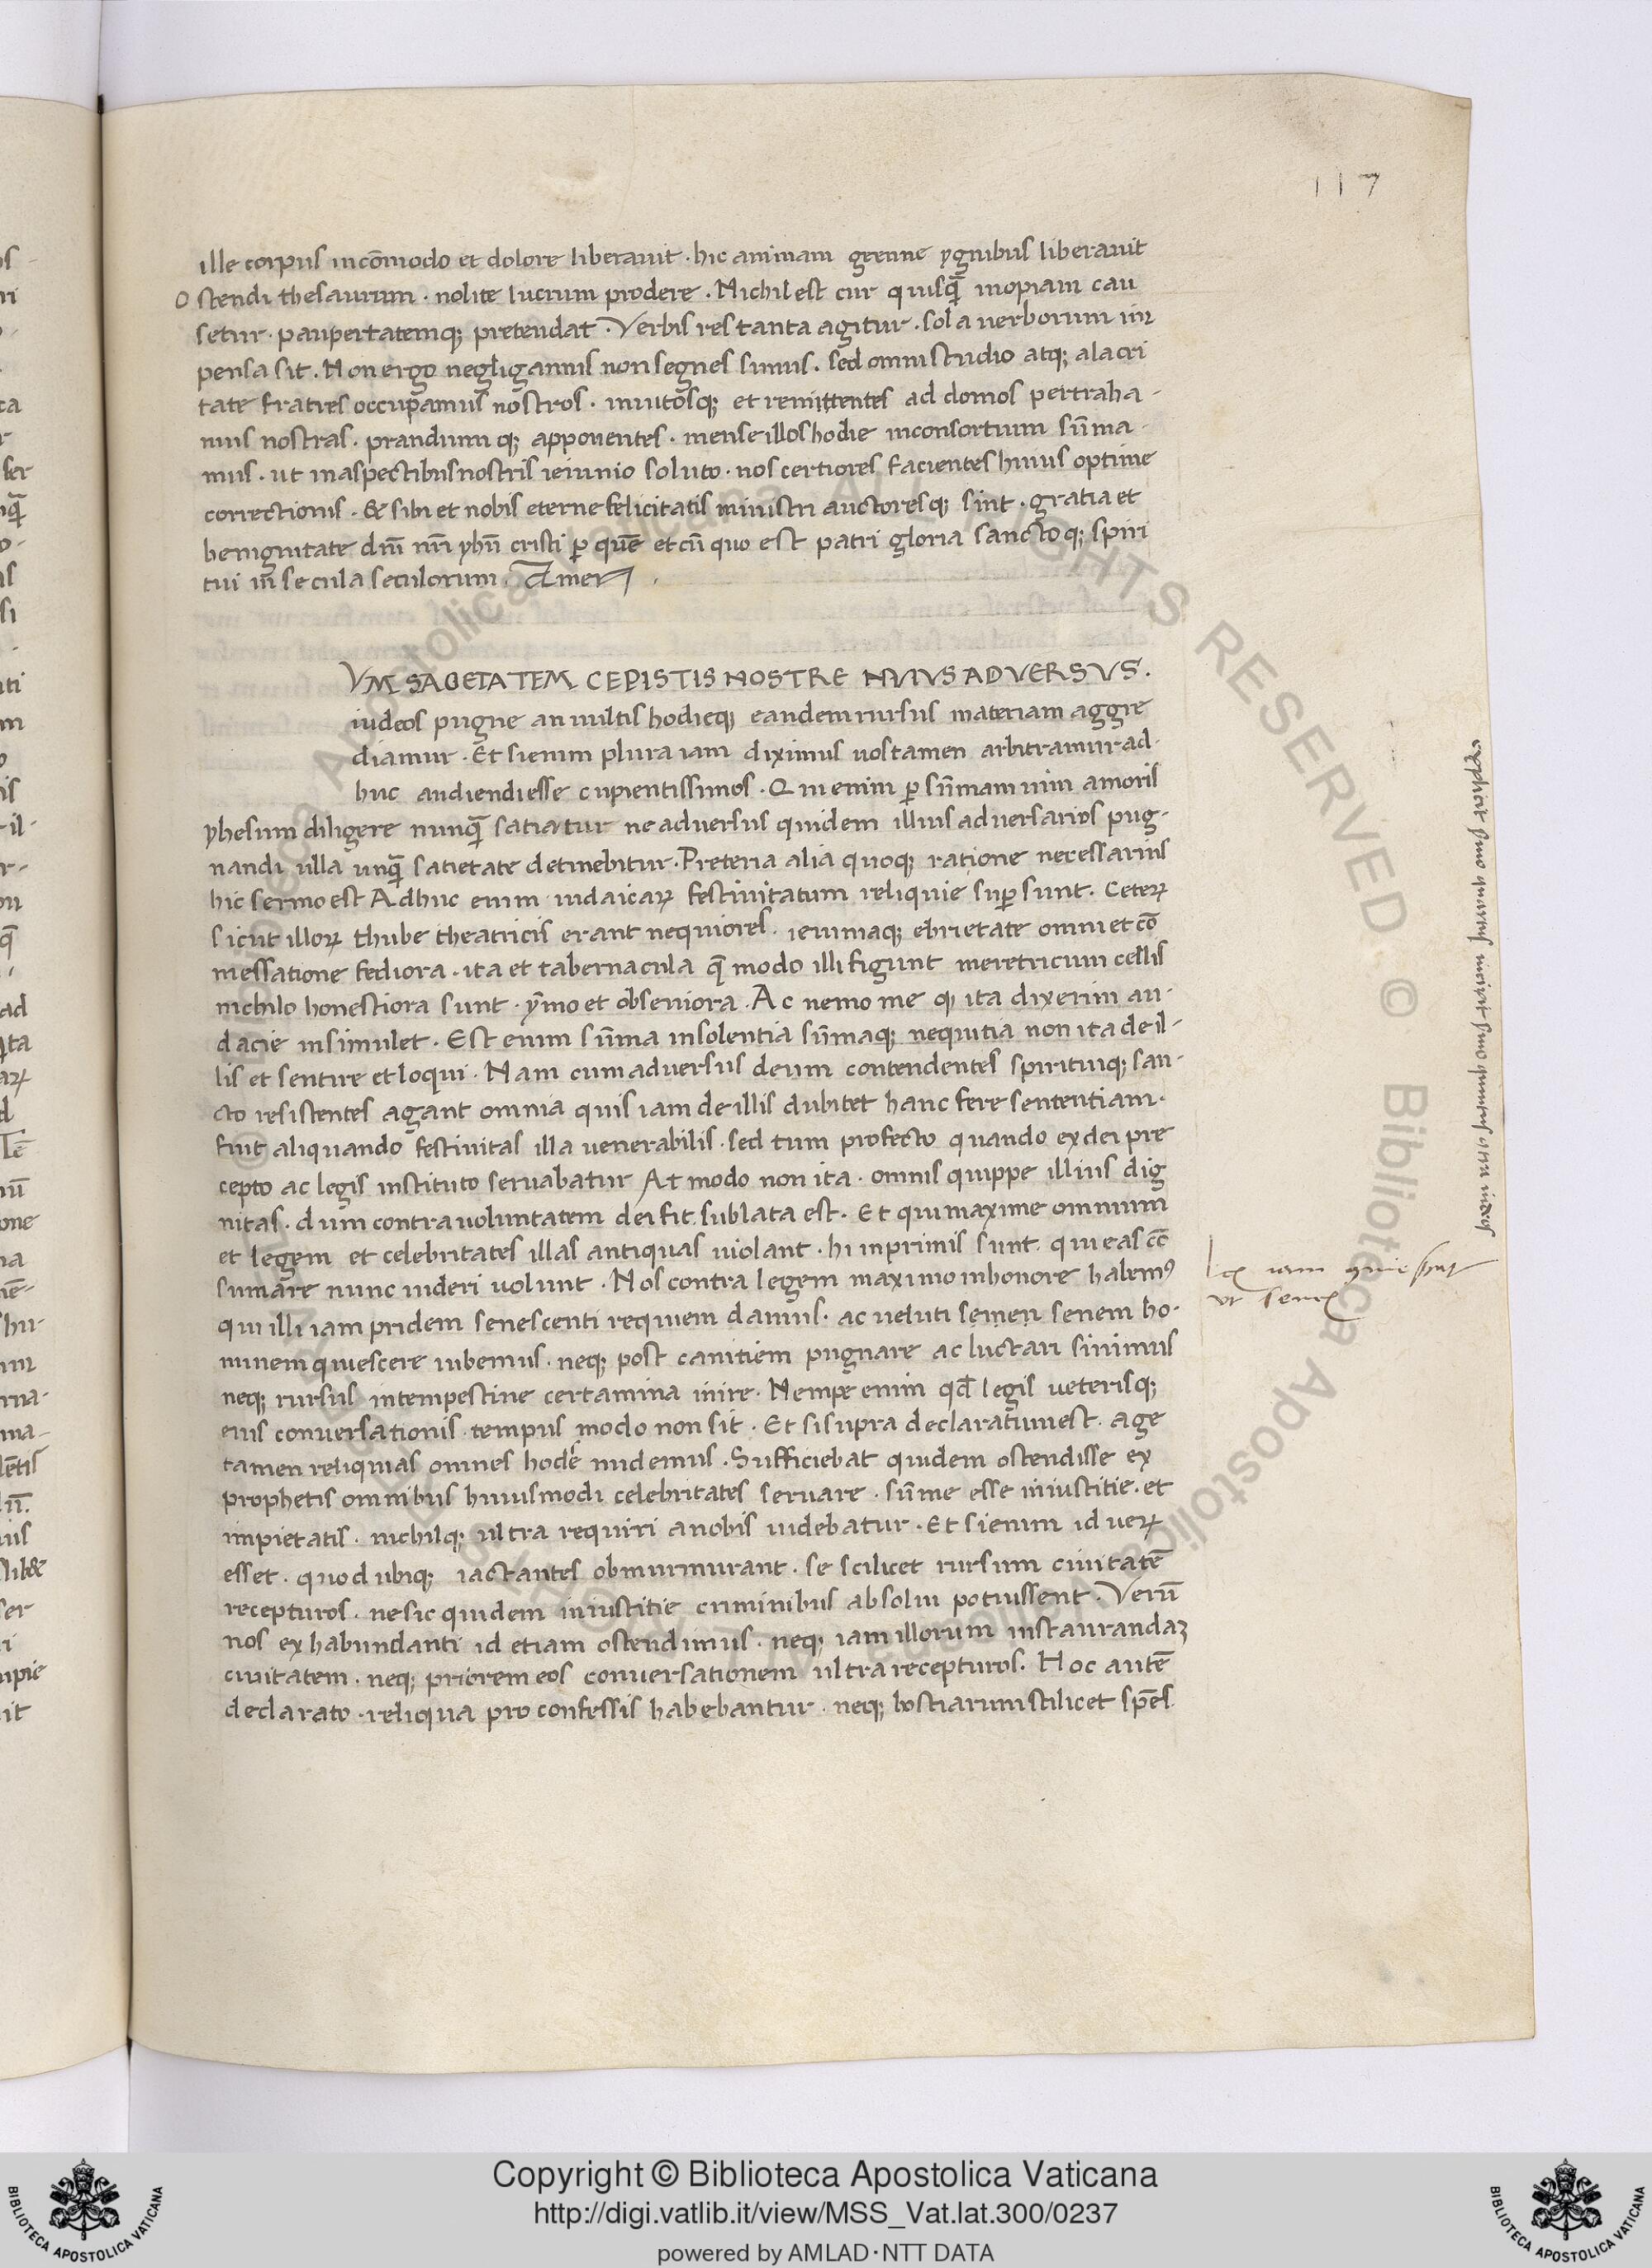 117
ille corpus incõmodo et dolore liberavit · hic animam geenne ygnibus liberavit
O stendi thesaurum · nolite lucrum prodere · Nichil est cur quisq̃ inopiam cau
setur · paupertatemq; pretendat · Verbis res tanta agitur · sola verborum im
pensa sit · Non ergo negligamus non segnes simus · sed omni studio atq; alacri
tate fratres occupamus nostros · invitosq; et remittentes ad domos pertraha-
mus nostras · prandium q; apponentes · mense illos hodie in consortium sũma
mus · ut in aspectibus nostris ieiunio soluto · nos certiores facientes huius optime
correctionis · & sibi et nobis eterne felicitatis ministri auctoresq; sint · gratia et
benignitate dñi nr̃i yhũ cristi p quẽ et cũ quo est patri gloria sancto q; spiri
tui in secula seculorum · Amen ·
VM SACIETATEM CEPISTIS NOSTRE HUIUS ADVERSVS ·
iudeos pugne an vultis hodieq; eandem rursus materiam aggre
diamur · Et si enim plura iam diximus vos tamen arbitramur ad-
huc audiendi esse cupientissimos · Qui enim p sũmam vim amoris
yhesum diligere nunq̃ satiatur ne adversus quidem illius adversarios pug-
nandi ulla unq̃ satietate detinebitur · Preterea alia quoq; ratione necessarius
hic sermo est Adhuc enim iudaicaꝝ festivitatum reliquie sup sunt · Ceteꝝ
sicut illoꝝ thube theatricis erant nequiores · ieiuniaq; ebrietate omni et cõ
messatione fediora · ita et tabernacula q̃ modo illi figunt meretricum cellis
nichilo honestiora sunt · ymo et obseniora · Ac nemo me q ita dixerim au-
dacie insimulet · Est enim sũma insolentia sũmaq; nequitia non ita de il-
lis et sentire et loqui · Nam cum adversus deum contendentes spirituiq; san-
cto resistentes agant omnia quis iam de illis dubitet hanc fere sententiam ·
fuit aliquando festivitas illa venerabilis · sed tum profecto quando ex dei pre
cepto ac legis instituto servabatur At modo non ita · omnis quippe illius dig
nitas · dum contra voluntatem dei fit sublata est · Et qui maxime omnium
et legem et celebritates illas antiquas violant · hi inprimis sunt qui eas cõ
sumare nunc videri volunt · Nos contra legem maximo in honore habem⁹
qui illi iam pridem senescenti requiem damus · ac veluti semen senem ho-
minem quiescere iubemus · neq; post canitiem pugnare ac luctari sinimus
neq; rursus intempestive certamina inire · Nempe enim qd̃ legis veterisq;
eius conversationis tempus modo non sit · Et si supra declaratum est · age
tamen reliquias omnes hodie videmus · Sufficiebat quidem ostendisse ex
prophetis omnibus huiusmodi celebritates servare · sũme esse iniustitie · et
impietatis · nichilq; ultra requiri a nobis videbatur · Et si enim id veꝝ
esset · quod ubiq; iactantes obmurmurant · se scilicet rursum civitatẽ
recepturos · ne sic quidem iniustitie criminibus absolvi potuissent · Verũ
nos ex habundanti id etiam ostendimus · neq; iam illorum instaurandaꝫ
civitatem · neq; priorem eos conversationem ultra recepturos · Hoc autẽ
declarato · reliqua pro confessis habebantur · neq; hostiarum scilicet spẽs
lex iam quiescat
ut senex
explicit sermo quartus incipit sermo quintus
Copyright © Biblioteca Apostolica Vaticana
http://digi.vatlib.it/view/MSS_Vat.lat.300/0237
powered by AMLAD·NTT DATA
BIBLIOTECA APOSTOLICA VATICANA
BIBLIOTECA APOSTOLICA VATICANA